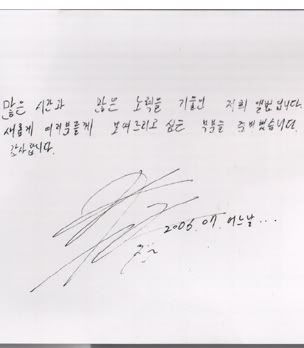 많은 시간과 많은 노력을 기울인 저희 앨범입니다.
새롭게 여러분들께 보여드리고 싶은 부분을 준비했습니다.
감사합니다.
2005. 07. 어느날...